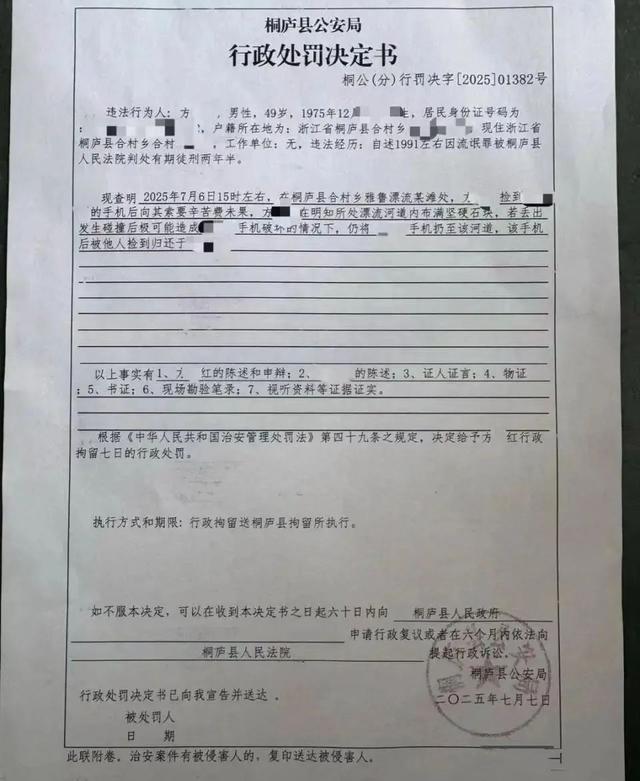 桐庐县公安局
行政处罚决定书
桐公(分)行罚决字[2025]01382号
违法行为人：方 ，男性，49岁，1975年12月 生，居民身份证号码为
： ，户籍所在地为：浙江省桐庐县合村乡 现住浙江省
桐庐县合村乡合村 ，工作单位：无，违法经历：自述1991左右因流氓罪被桐庐县
人民法院判处有期徒刑两年半。
现查明 2025年7月6日15时左右，在桐庐县合村乡雅鲁漂流某滩处， 捡到
的手机后向其索要辛苦费未果，方 在明知所处漂流河道内布满坚硬石块，若丢出
发生碰撞后极可能造成 手机破坏的情况下，仍将 手机扔至该河道，该手机
后被他人捡到归还于
以上事实有1、方 红的陈述和申辩；2、 的陈述；3、证人证言；4、物证
；5、书证；6、现场勘验笔录；7、视听资料等证据证实。
根据《中华人民共和国治安管理处罚法》第四十九条之规定，决定给予方 红行政
拘留七日的行政处罚。
执行方式和期限：行政拘留送桐庐县拘留所执行。
如不服本决定，可以在收到本决定书之日起六十日内向 桐庐县人民政府
申请行政复议或者在六个月内依法向
桐庐县人民法院 提起行政诉讼。
桐庐县公安局
二〇二五年七月七日
行政处罚决定书已向我宣告并送达 。
被处罚人
日 期
此联附卷。治安案件有被侵害人的，复印送达被侵害人。